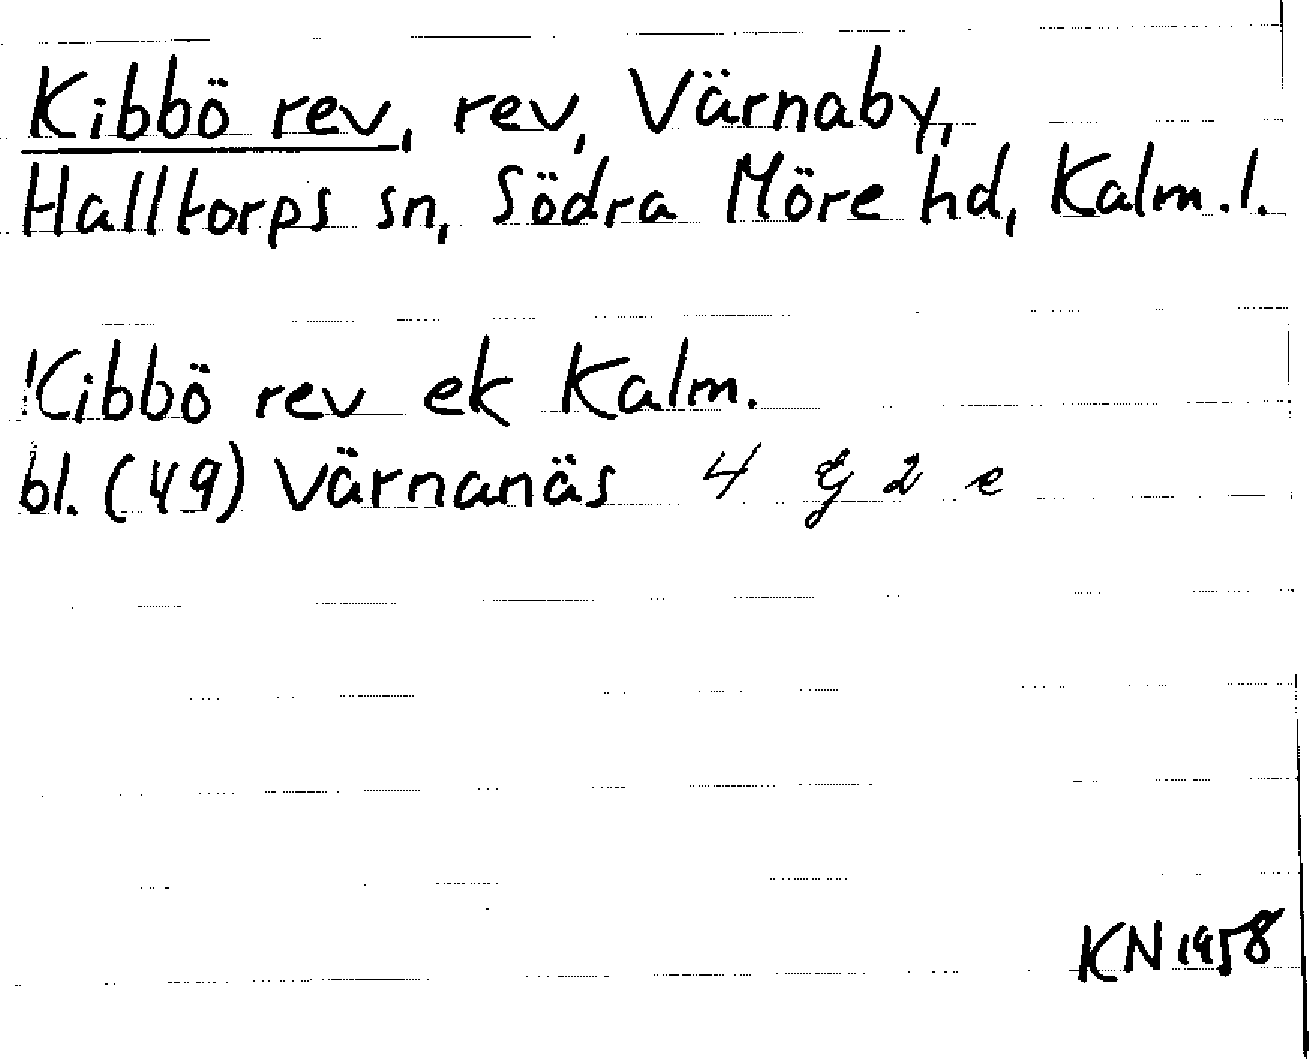 Kibbö rev, rev, Värnaby,
Halltorps sn, Södra Möre hd, Kalm. l.
Kibbö rev ek Kalm.
bl. (49) Värnanäs 4 G 2 e
KN 1958